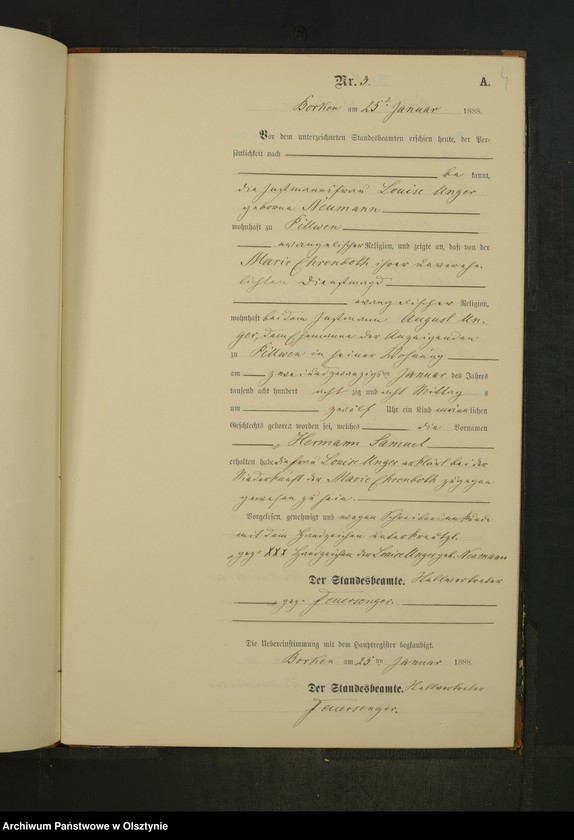 4
Nr. 3.
A.
Borken am 25t Januar 1888.
Vor dem unterzeichneten Standesbeamten erschien heute, der Per-
sönlichkeit nach
be kannt,
die Instmannsfrau Louise Unger
geborne Neumann
wohnhaft zu Pillwen
evangelischer Religion, und zeigte an, daß von der
Marie Ehrenboth, ihrer unverehe-
lichten Dienstmagd
evangelischer Religion,
wohnhaft bei dem Instmann August Un-
ger, dem Ehemanne der Anzeigenden
zu Pillwen in seiner Wohnung
am zwei und zwanzigsten Januar des Jahres
tausend acht hundert acht zig und acht Mittag s
um zwölf Uhr ein Kind männlichen
Geschlechts geboren worden sei, welches die Vornamen
Hermann Samuel
erhalten habe die Frau Louise Unger erklärt bei der
Niederkunft der Marie Ehrenboth zugegen
gewesen zu sein.
Vorgelesen, genehmigt und wegen Schreibensunkunde
mit dem Handzeichen unterkreuzt.
gez. XXX Handzeichen der Louise Unger geb. Neumann
Der Standesbeamte.
gez. Feuersenger.
Die Uebereinstimmung mit dem Hauptregister beglaubigt.
Borken am 25ten Januar 1888.
Der Standesbeamte.
Feuersenger.
Archiwum Państwowe w Olsztynie